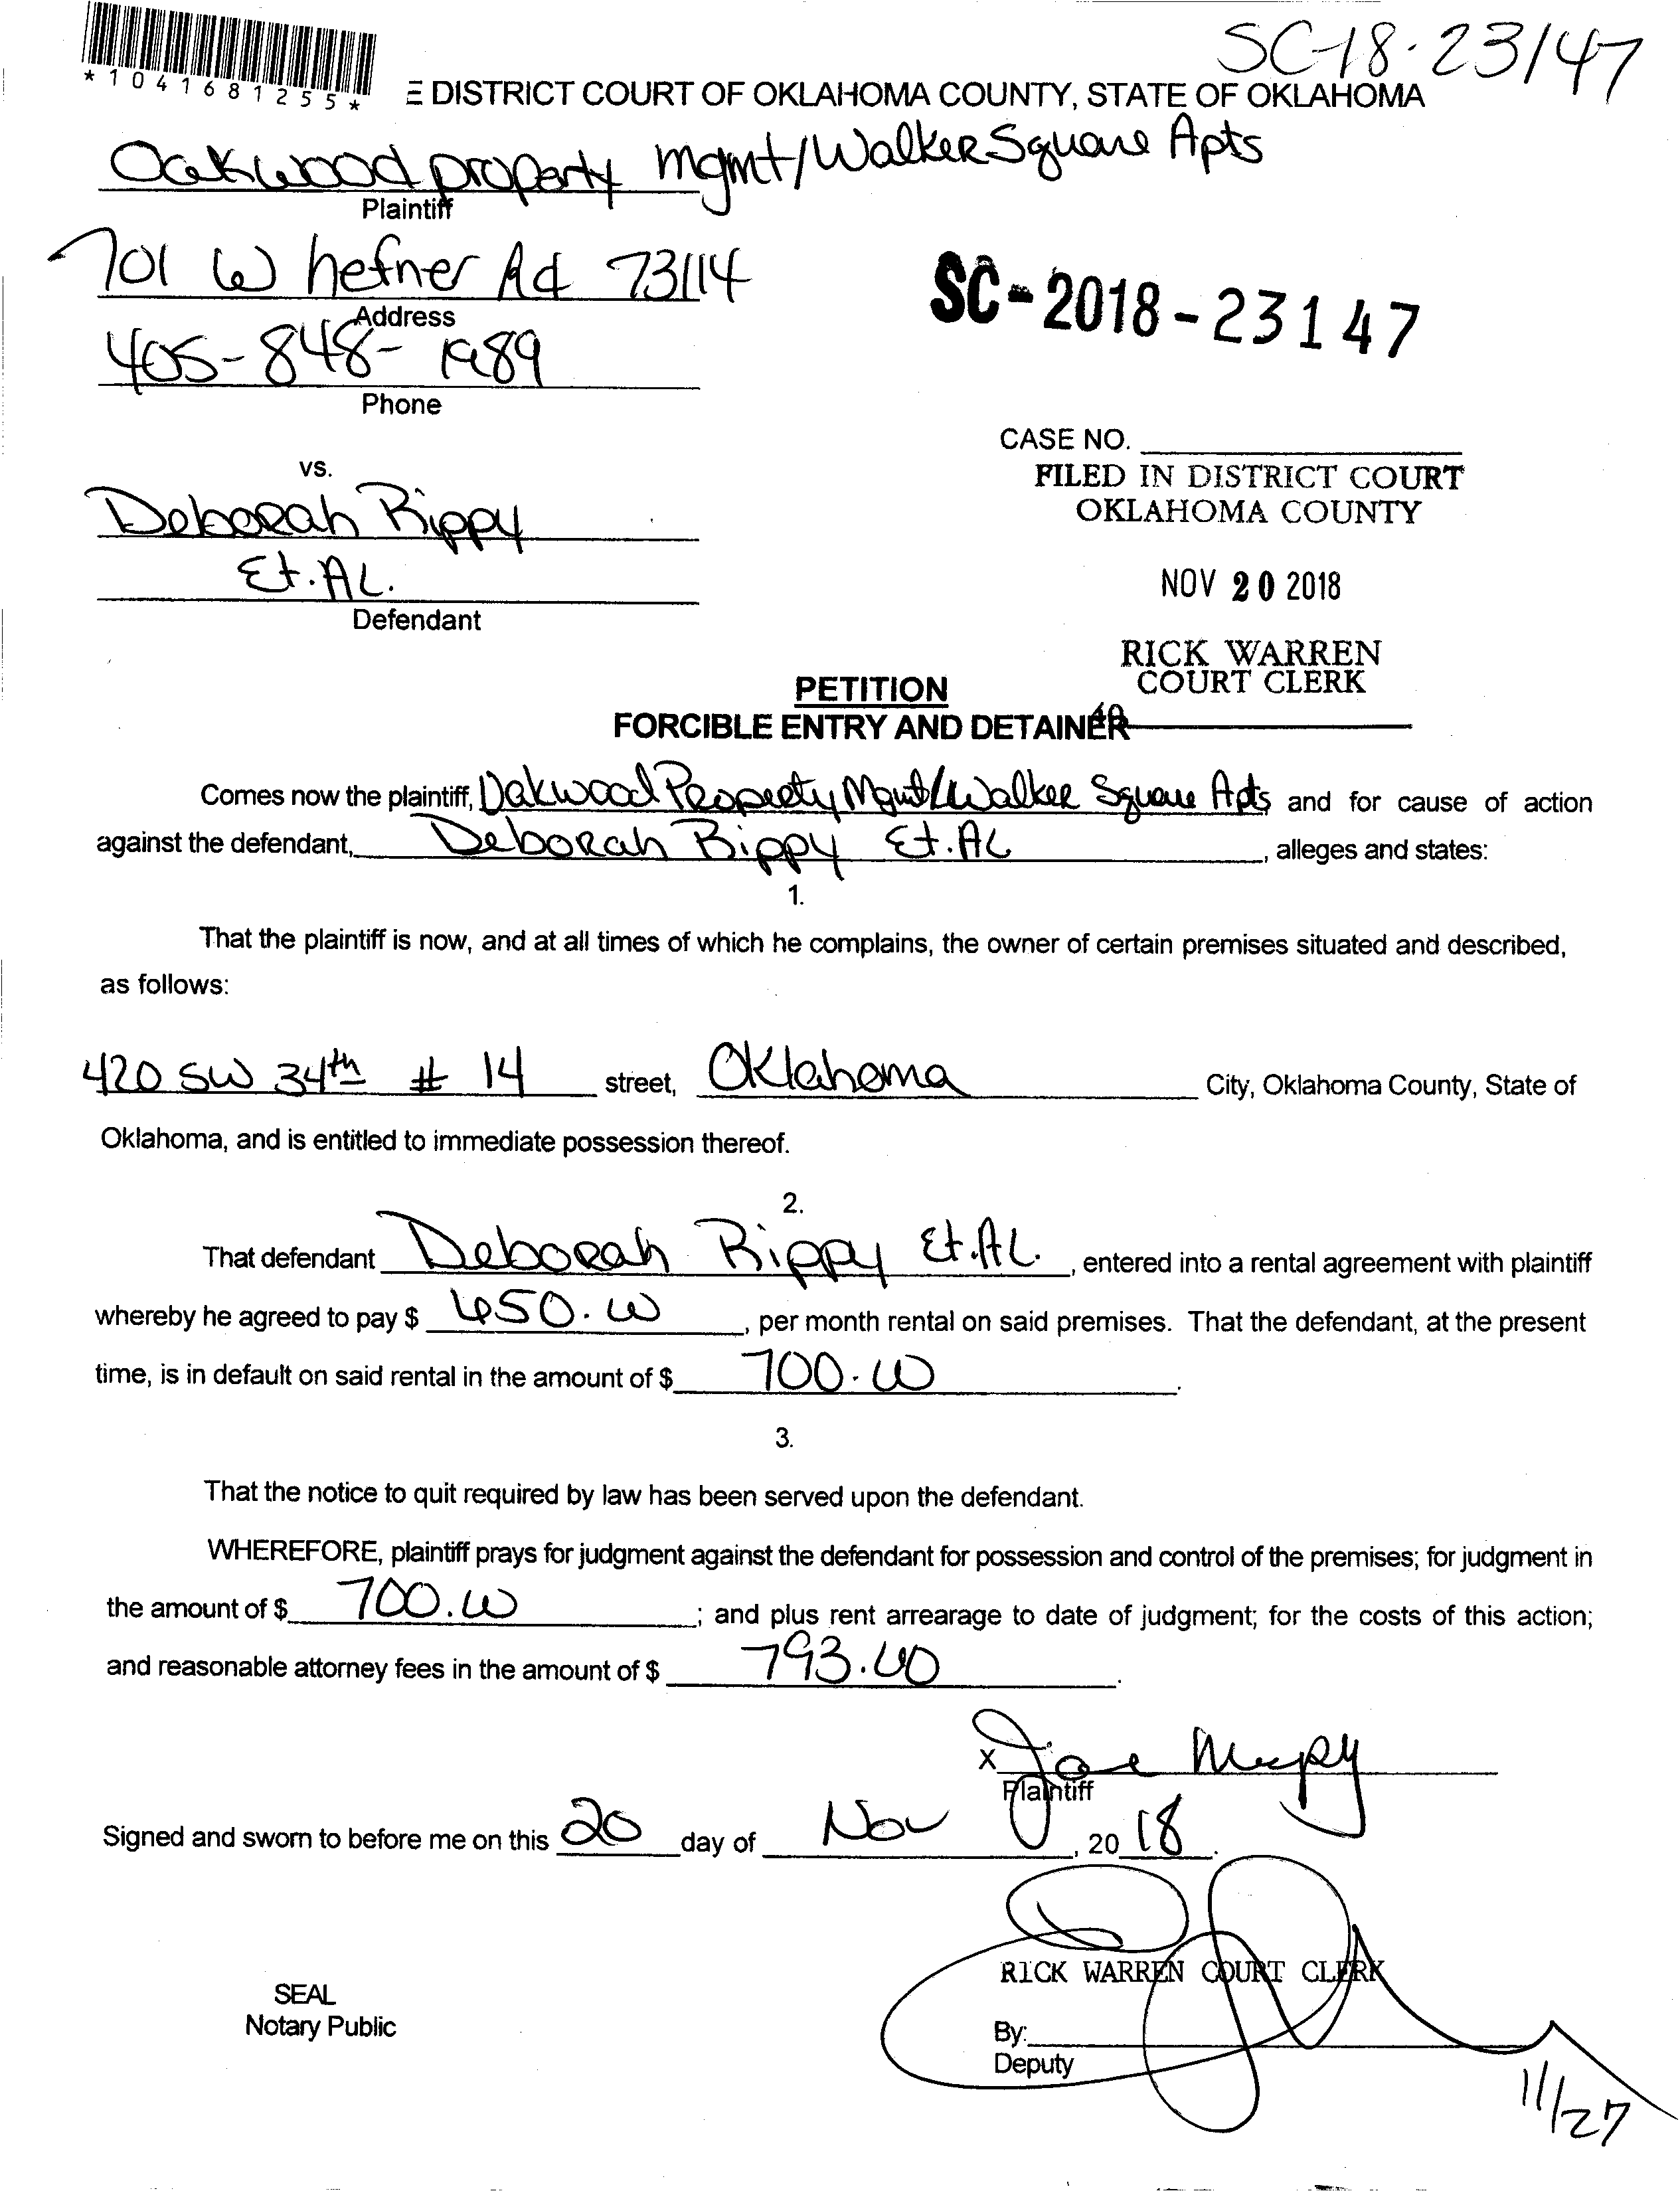 SC-18-23147
*1041681255*
E DISTRICT COURT OF OKLAHOMA COUNTY, STATE OF OKLAHOMA
Oakwood property mgmt/Walker Square Apts
Plaintiff
701 W hefner Rd 73114
Address
SC-2018-23147
405-848-1989
Phone
CASE NO.
vs.
FILED IN DISTRICT COURT
OKLAHOMA COUNTY
Deborah Rippy
Et.AL.
Defendant
NOV 20 2018
RICK WARREN
COURT CLERK
PETITION
FORCIBLE ENTRY AND DETAINER
Comes now the plaintiff, Oakwood Property Mgmt/Walker Square Apts and for cause of action
against the defendant, Deborah Rippy Et.AL, alleges and states:
1.
That the plaintiff is now, and at all times of which he complains, the owner of certain premises situated and described,
as follows:
420 SW 34th # 14 street, Oklahoma City, Oklahoma County, State of
Oklahoma, and is entitled to immediate possession thereof.
2.
That defendant Deborah Rippy Et.AL., entered into a rental agreement with plaintiff
whereby he agreed to pay $ 650.00, per month rental on said premises. That the defendant, at the present
time, is in default on said rental in the amount of $ 700.00.
3.
That the notice to quit required by law has been served upon the defendant.
WHEREFORE, plaintiff prays for judgment against the defendant for possession and control of the premises; for judgment in
the amount of $ 700.00; and plus rent arrearage to date of judgment; for the costs of this action;
and reasonable attorney fees in the amount of $ 793.00.
X
Plaintiff
Signed and sworn to before me on this 20 day of Nov, 20 18.
RICK WARREN COURT CLERK
SEAL
Notary Public
By:
Deputy
11/27